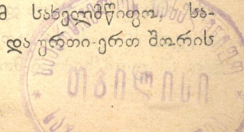 მ სახელმწიფო, სა-
და ურთი-ერთ შორის
თბილისი